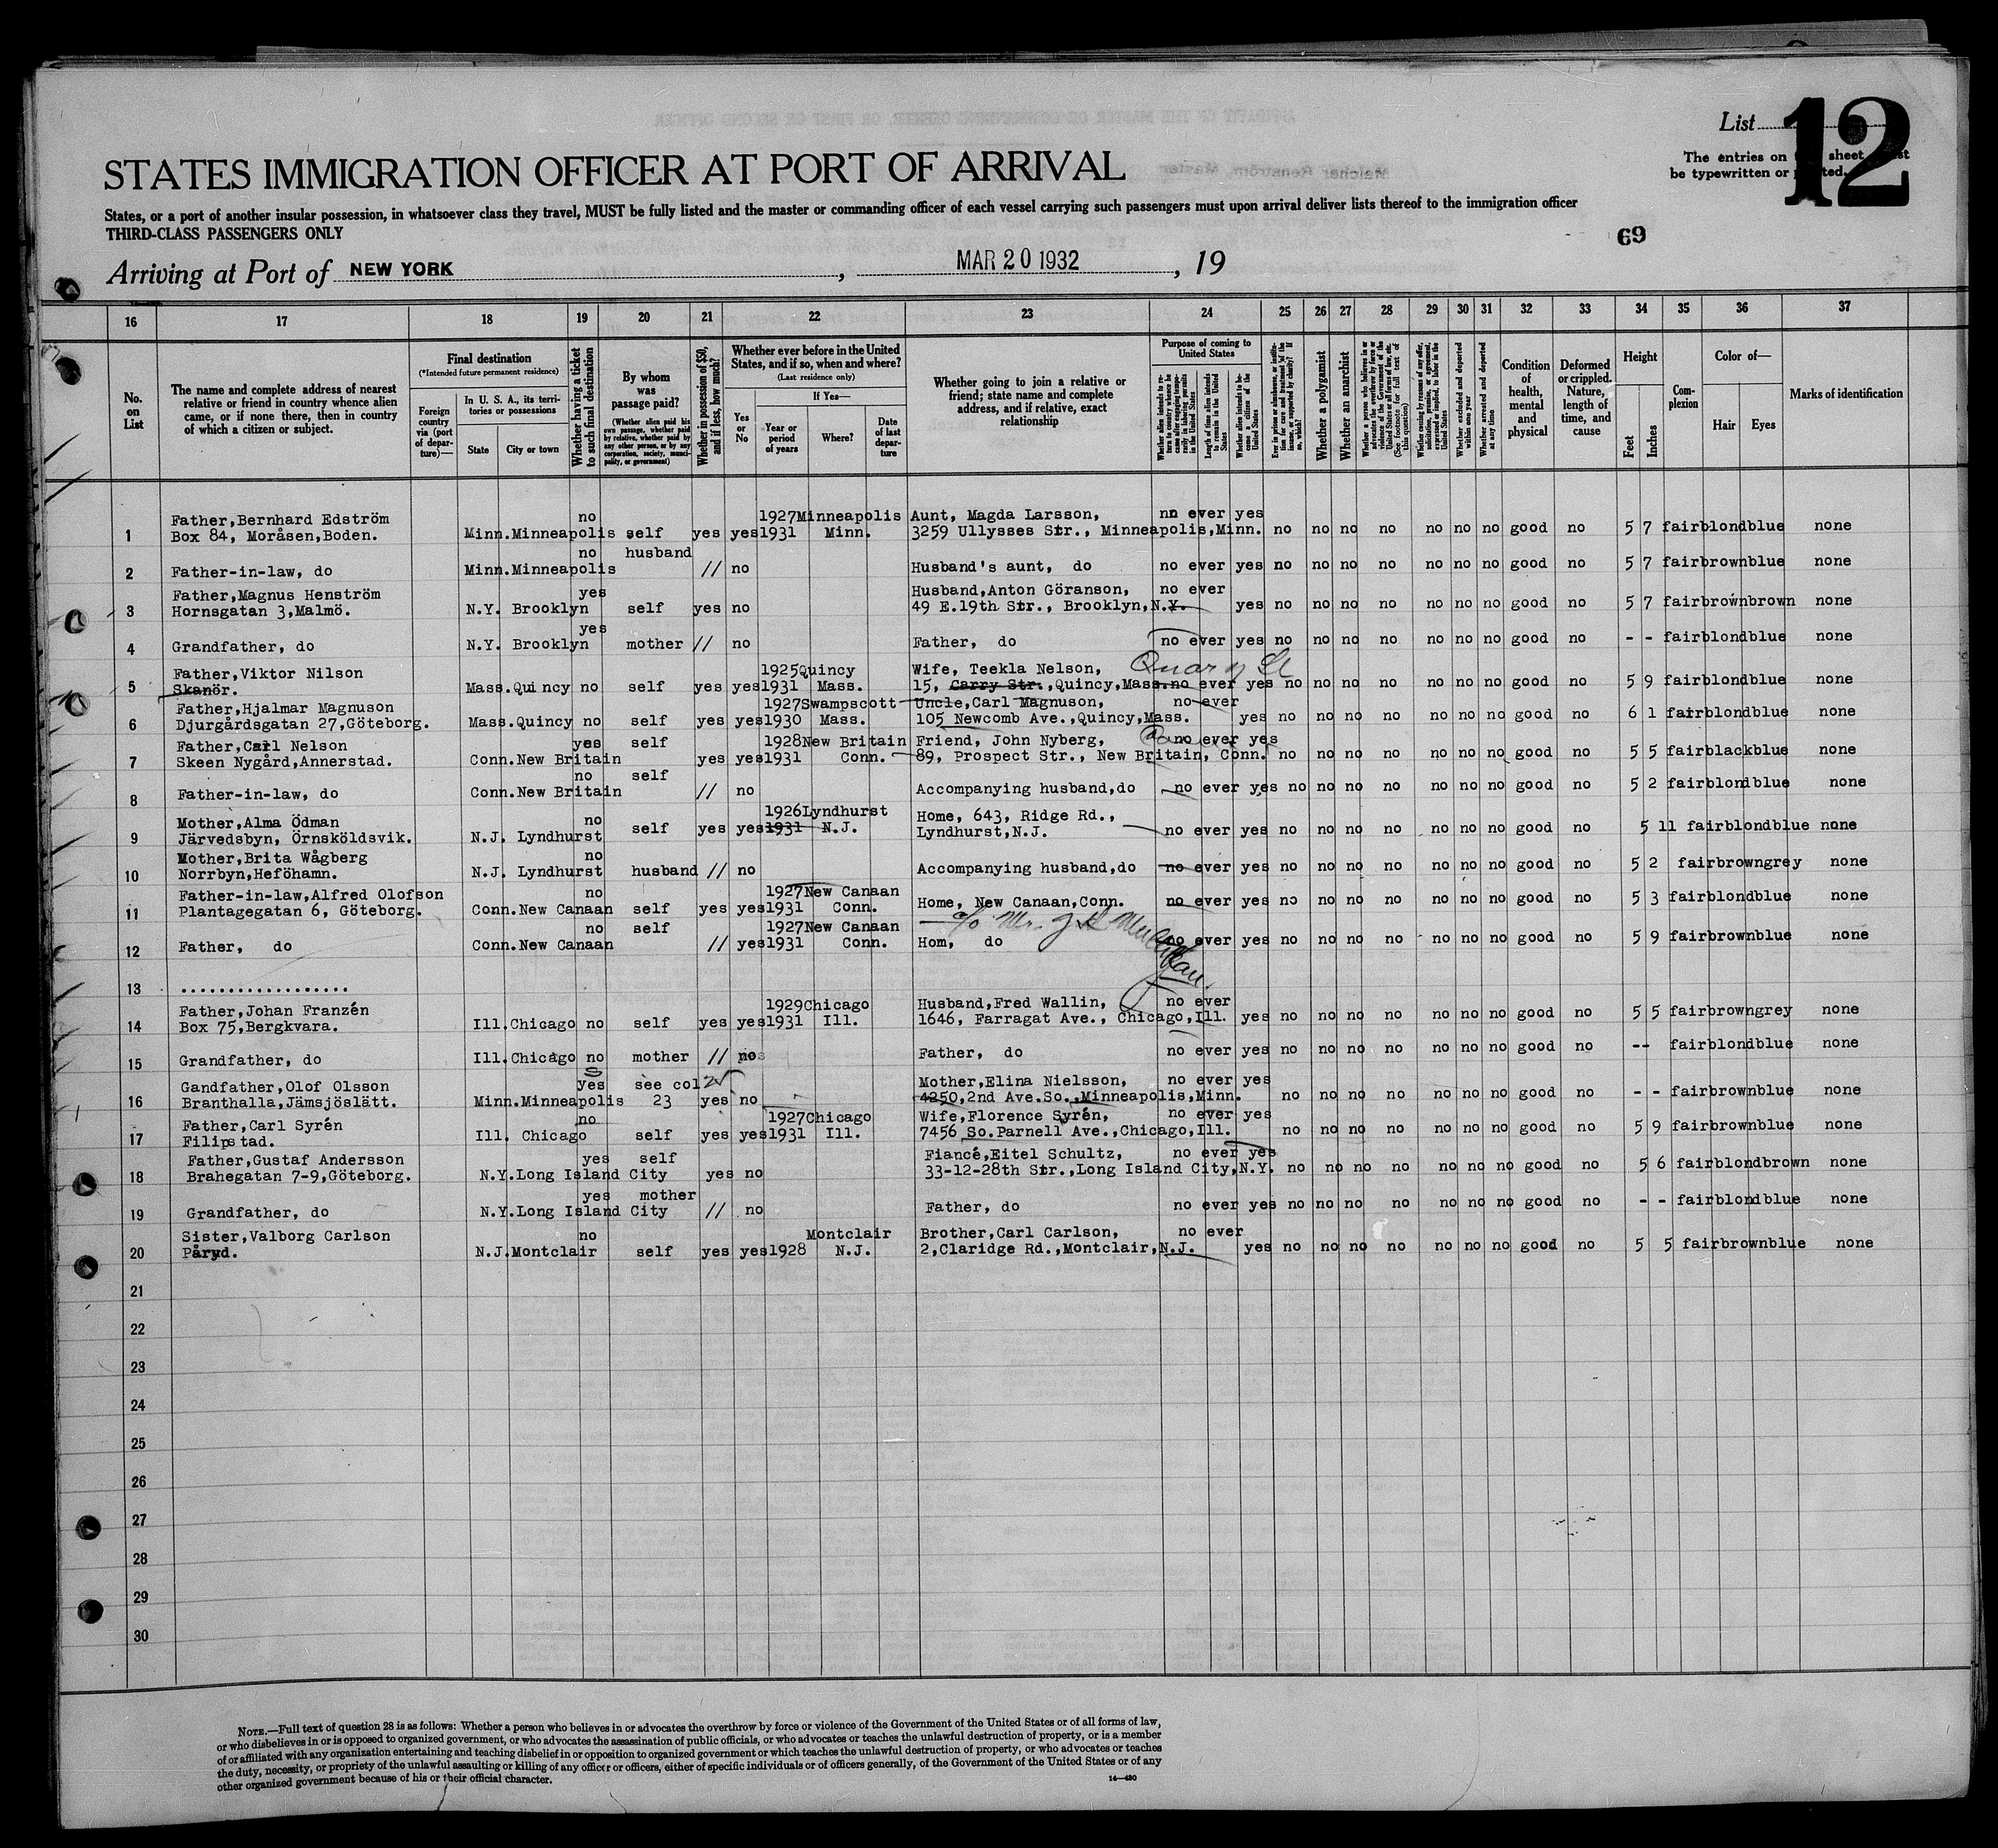 List 12
The entries on sheet
be typewritten or
STATES IMMIGRATION OFFICER AT PORT OF ARRIVAL
States, or a port of another insular possession, in whatsoever class they travel, MUST be fully listed and the master or commanding officer of each vessel carrying such passengers must upon arrival deliver lists thereof to the immigration officer
THIRD-CLASS PASSENGERS ONLY
69
Arriving at Port of NEW YORK, MAR 20 1932, 19
16 17 18 19 20 21 22 23 24 25 26 27 28 29 30 31 32 33 34 35 36 37
No. on List
The name and complete address of nearest relative or friend in country whence alien came, or if none there, then in country of which a citizen or subject.
Final destination
(*Intended future permanent residence)
Foreign country via (port of departure)—
In U. S. A., its territories or possessions
State
City or town
Whether having a ticket to such final destination
By whom was passage paid?
(Whether alien paid his own passage, whether paid by relative, whether paid by any other person, or by any corporation, society, municipality, or government)
Whether in possession of $50, and if less, how much?
Whether ever before in the United States, and if so, when and where?
(Last residence only)
Yes or No
If Yes—
Year or period of years
Where?
Date of last departure
Whether going to join a relative or friend; state name and complete address, and if relative, exact relationship
Purpose of coming to United States
Length of time alien intends to remain in the United States
Whether alien intends to become a citizen of the United States
Whether a polygamist
Whether an anarchist
Whether excluded and deported within one year
Whether arrested and deported at any time
Condition of health, mental and physical
Deformed or crippled. Nature, length of time, and cause
Height
Feet
Inches
Complexion
Color of—
Hair
Eyes
Marks of identification
1 Father,Bernhard Edström no 1927Minneapolis Aunt, Magda Larsson, nn ever yes
Box 84, Moråsen,Boden. Minn.Minneapolis self yes yes1931 Minn. 3259 Ullysses Str., Minneapolis,Minn. no no no no no no no good no 5 7 fairblondblue none
no husband
2 Father-in-law, do Minn.Minneapolis // no Husband's aunt, do no ever yes no no no no no no no good no 5 7 fairbrownblue none
3 Father,Magnus Henström yes Husband,Anton Göranson, no ever
Hornsgatan 3,Malmö. N.Y. Brooklyn self yes no 49 E.19th Str., Brooklyn,N.Y. yes no no no no no no no good no 5 7 fairbrownbrown none
yes
4 Grandfather, do N.Y. Brooklyn mother // no Father, do no ever yes no no no no no no no good no - - fairblondblue none
5 Father,Viktor Nilson 1925Quincy Wife, Teekla Nelson, Quarry St
Skanör. Mass.Quincy no self yes yes1931 Mass. 15, Carry Str.,Quincy,Mass.no ever yes no no no no no no no good no 5 9 fairblondblue none
6 Father,Hjalmar Magnuson 1927Swampscott Uncle,Carl Magnuson, no ever
Djurgårdsgatan 27,Göteborg. Mass.Quincy no self yes yes1930 Mass. 105 Newcomb Ave.,Quincy,Mass. yes no no no no no no no good no 6 1 fairblondblue none
7 Father,Carl Nelson yes self 1928New Britain Friend, John Nyberg, no ever yes
Skeen Nygård,Annerstad. Conn.New Britain yes yes1931 Conn. 89, Prospect Str., New Britain, Conn. no no no no no no no good no 5 5 fairblackblue none
no self
8 Father-in-law, do Conn.New Britain // no Accompanying husband,do no ever yes no no no no no no no good no 5 2 fairblondblue none
9 Mother,Alma Ödman no 1926Lyndhurst Home, 643, Ridge Rd.,
Järvedsbyn, Örnsköldsvik. N.J. Lyndhurst self yes yes1931 N.J. Lyndhurst,N.J. no ever yes no no no no no no no good no 5 11 fairblondblue none
10 Mother,Brita Wågberg no
Norrbyn,Heföhamn. N.J. Lyndhurst husband // no Accompanying husband,do no ever yes no no no no no no no good no 5 2 fairbrowngrey none
11 Father-in-law,Alfred Olofson no 1927New Canaan
Plantagegatan 6, Göteborg. Conn.New Canaan self yes yes1931 Conn. Home, New Canaan,Conn. no ever yes no no no no no no no good no 5 3 fairblondblue none
no self 1927New Canaan c/o Mr.
12 Father, do Conn.New Canaan // yes1931 Conn. Hom, do no ever yes no no no no no no no good no 5 9 fairbrownblue none
13 ..................
14 Father,Johan Franzén 1929Chicago Husband,Fred Wallin, no ever
Box 75,Bergkvara. Ill.Chicago no self yes yes1931 Ill. 1646, Farragat Ave., Chicago,Ill. yes no no no no no no no good no 5 5 fairbrowngrey none
15 Grandfather, do Ill.Chicago no mother // no Father, do no ever yes no no no no no no no good no -- fairblondblue none
16 Gandfather,Olof Olsson yes see col Mother,Elina Nielsson, no ever yes
Branthalla,Jämsjöslätt. Minn.Minneapolis 23 yes no 4250,2nd Ave.So.,Minneapolis,Minn. no no no no no no no good no - - fairbrownblue none
17 Father,Carl Syrén no 1927Chicago Wife,Florence Syrén, no ever yes
Filipstad. Ill. Chicago self yes yes1931 Ill. 7456 So.Parnell Ave.,Chicago,Ill. no no no no no no no good no 5 9 fairbrownblue none
18 Father,Gustaf Andersson yes self Fiancé,Eitel Schultz, no ever yes
Brahegatan 7-9,Göteborg. N.Y.Long Island City yes no 33-12-28th Str.,Long Island City,N.Y. no no no no no no no good no 5 6 fairblondbrown none
yes mother
19 Grandfather, do N.Y.Long Island City // no Father, do no ever yes no no no no no no no good no - - fairblondblue none
20 Sister,Valborg Carlson no Montclair Brother,Carl Carlson, no ever
Påryd. N.J.Montclair self yes yes1928 N.J. 2,Claridge Rd.,Montclair,N.J. yes no no no no no no no good no 5 5 fairbrownblue none
21
22
23
24
25
26
27
28
29
30
NOTE.—Full text of question 28 is as follows: Whether a person who believes in or advocates the overthrow by force or violence of the Government of the United States or of all forms of law,
or who disbelieves in or is opposed to organized government, or who advocates the assassination of public officials, or who advocates or teaches the unlawful destruction of property, or is a member
of or affiliated with any organization entertaining and teaching disbelief in or opposition to organized government or which teaches the unlawful destruction of property, or who advocates or teaches
the duty, necessity, or propriety of the unlawful assaulting or killing of any officer or officers, either of specific individuals or of officers generally, of the Government of the United States or of any
other organized government because of his or their official character.
14—430